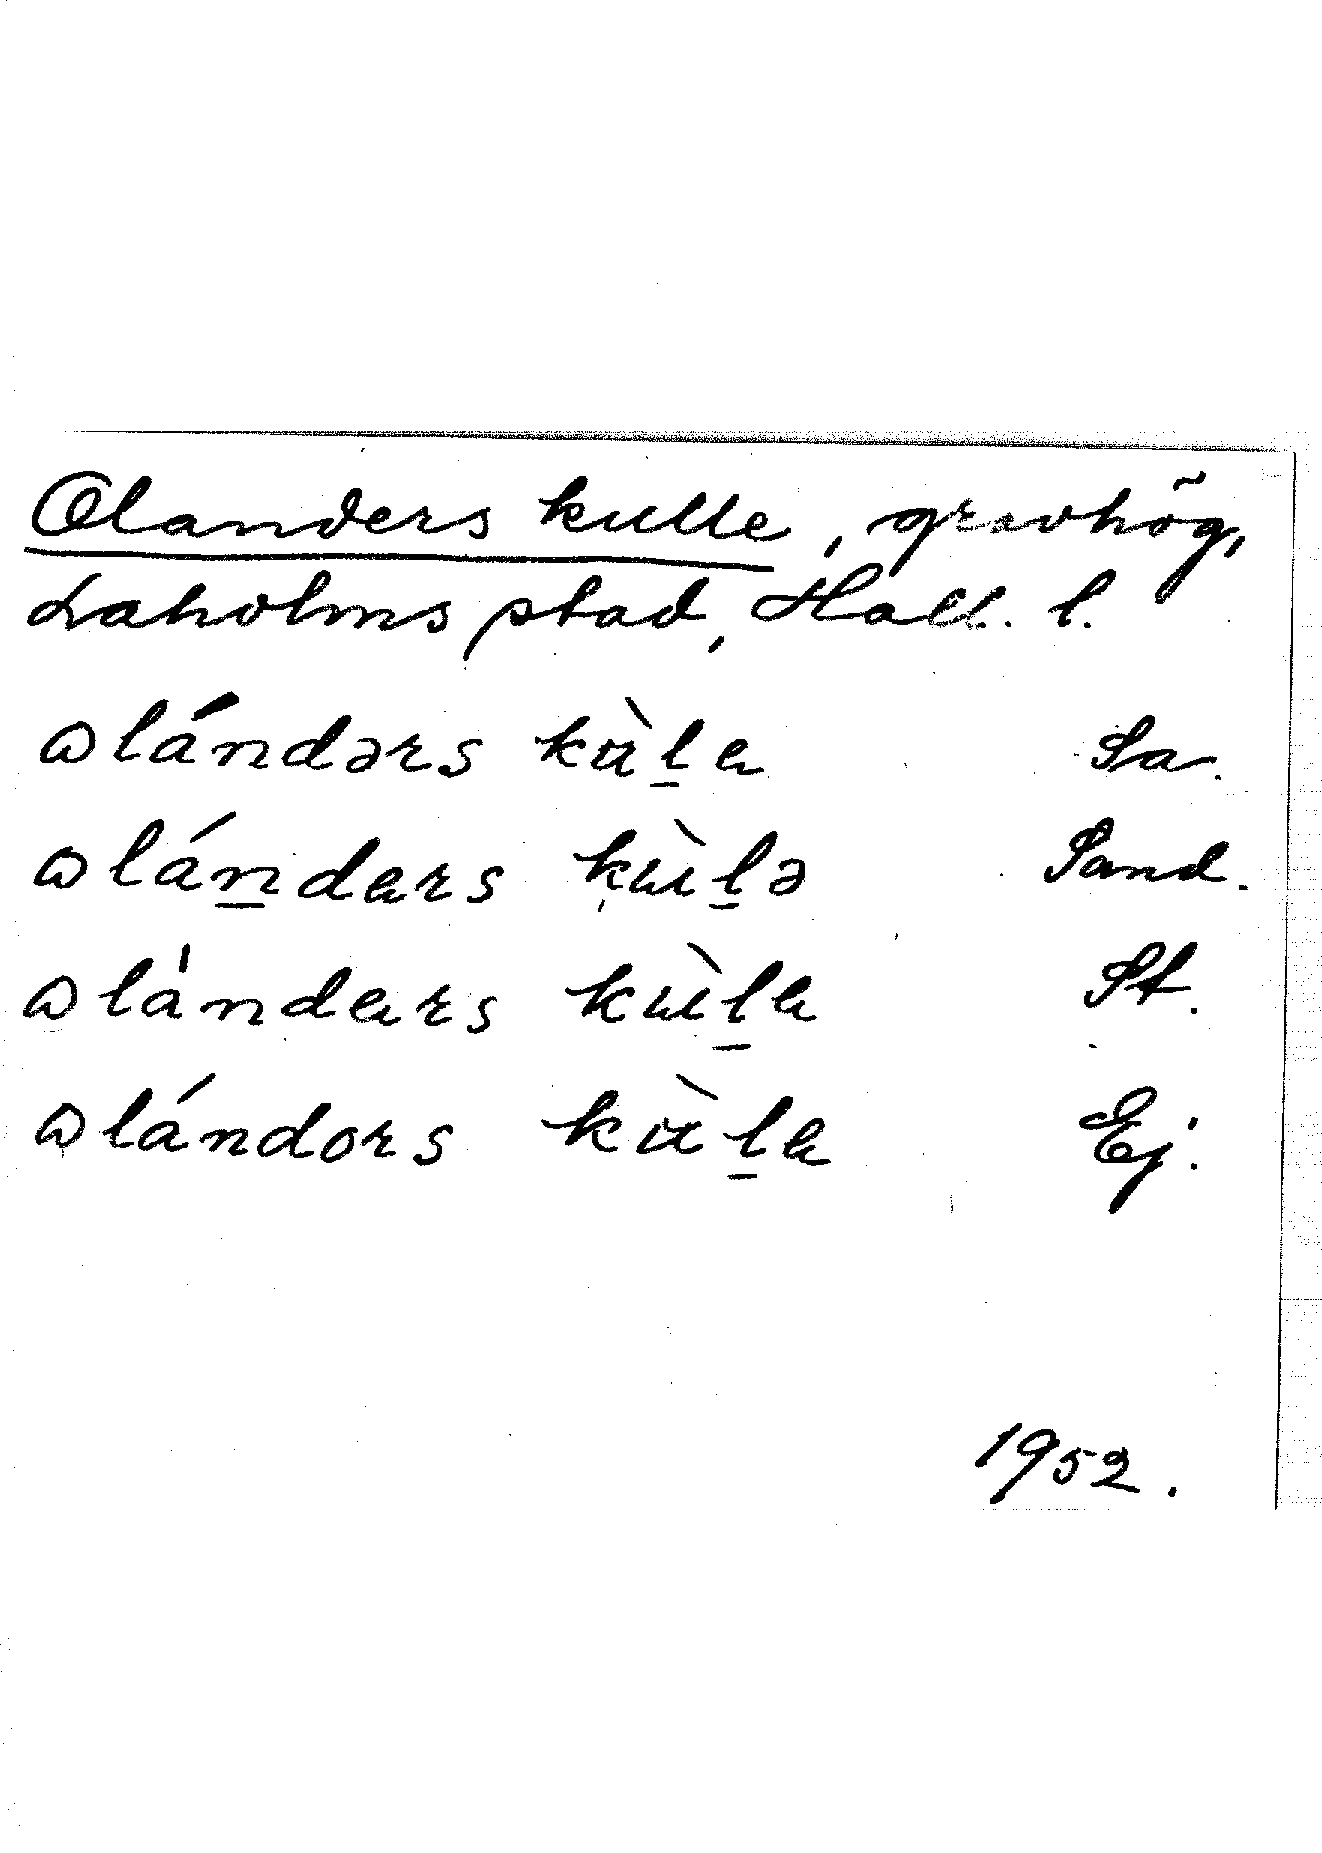 Olanders kulle, gravhög,
Laholms stad, Hall. l.
ɷlándərs kɯ̀l̲e Sa.
ɷlán̲ders kɯ̀l̲ə Sand.
ɷlánders kɯ̀l̲e St.
ɷlándors kɯ̀l̲e Ej.
1952.